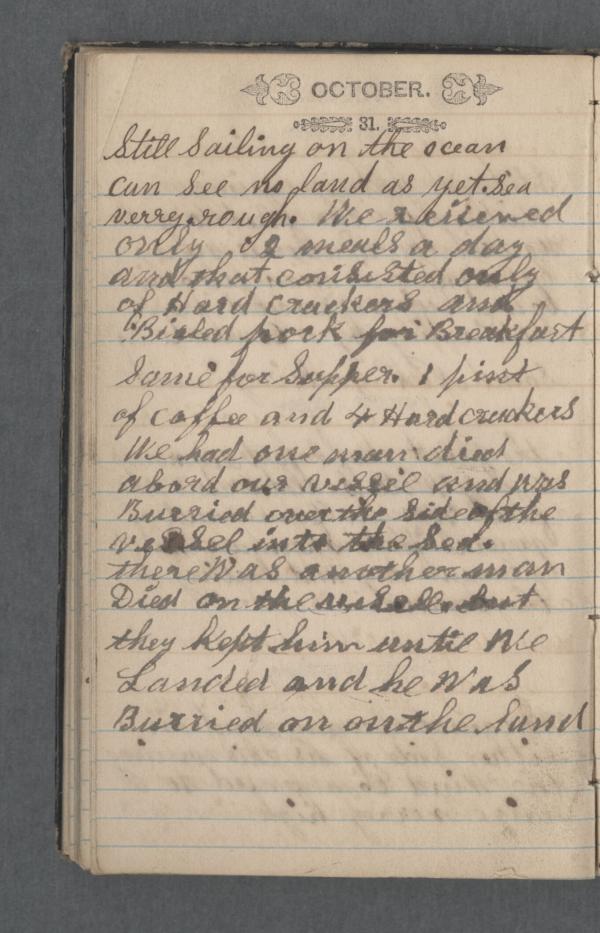 OCTOBER.
31.
Still Sailing on the ocean
can See no land as yet. Sea
verry rough. We received
only 2 meals a day
and that consisted only
of Hard Crackers and
Bioled pork for Breakfast
Same for Supper. 1 pint
of coffee and 4 Hard crackers
We had one man died
abord our vessil and was
Burried over the Side of the
vessel into the Sea.
there Was another man
Died on the vessell. but
they kept him until We
Landed and he Was
Burried on on the land